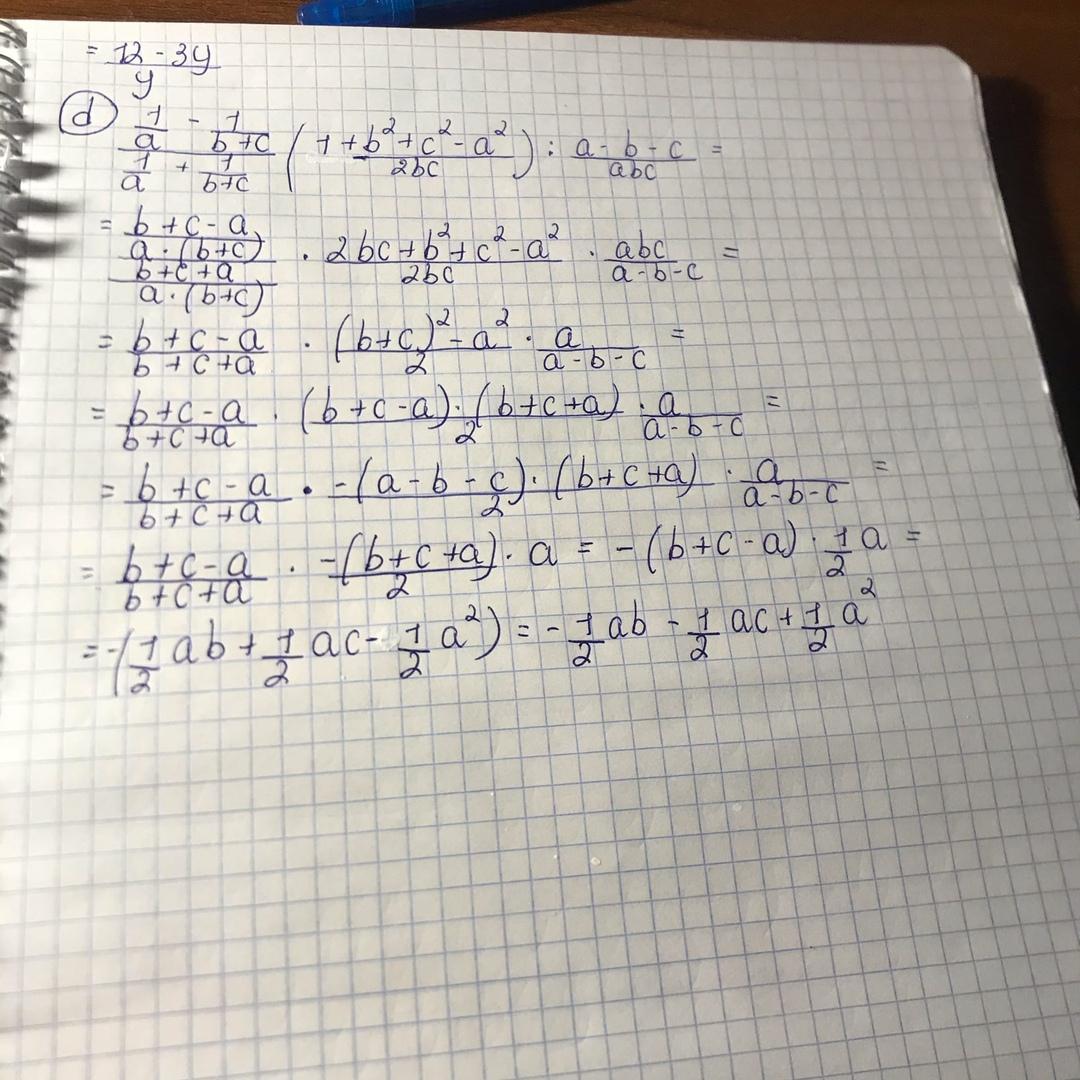 = 12 - 3y / y
d) (1/a - 1/(b+c)) / (1/a + 1/(b+c)) (1 + (b² + c² - a²)/2bc) : (a - b - c)/abc =
= ((b + c - a)/(a · (b+c))) / ((b + c + a)/(a · (b+c))) · (2bc + b² + c² - a²)/2bc · abc/(a - b - c) =
= (b + c - a)/(b + c + a) · ((b+c)² - a²)/2 · a/(a - b - c) =
= (b + c - a)/(b + c + a) · (b + c - a) · (b + c + a)/2 · a/(a - b - c) =
= (b + c - a)/(b + c + a) · -(a - b - c) · (b + c + a)/2 · a/(a - b - c) =
= (b + c - a)/(b + c + a) · -(b + c + a)/2 · a = -(b + c - a) · 1/2 a =
= -(1/2 ab + 1/2 ac - 1/2 a²) = - 1/2 ab - 1/2 ac + 1/2 a²